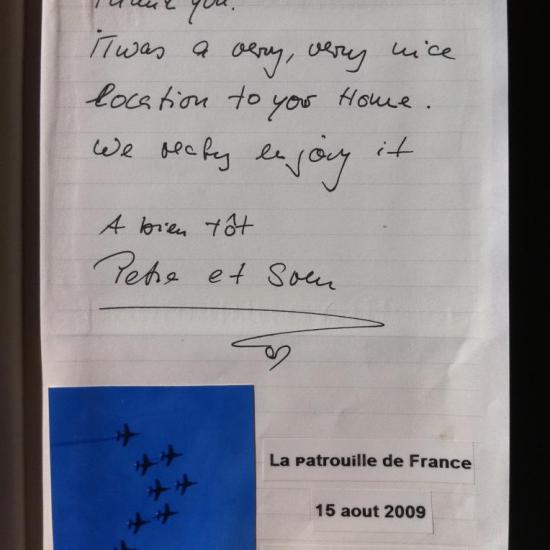 Thank you.
iTwas a very, very nice
location to your Home.
We really enjoy it
A bien tôt
Petra et Sven
La patrouille de France
15 aout 2009